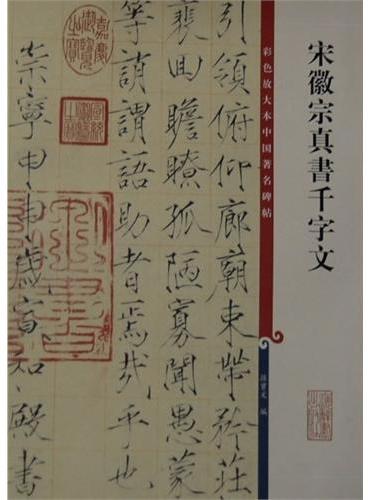 宋徽宗真書千字文
彩色放大本中国著名碑帖
孫寶文 編
引領俯仰廊廟束帶矜莊
裵回瞻瞭孤陋寡聞愚蒙
等誚謂語助者焉哉乎也
崇寧甲申歲宣和殿書
嘉慶御覽之寶